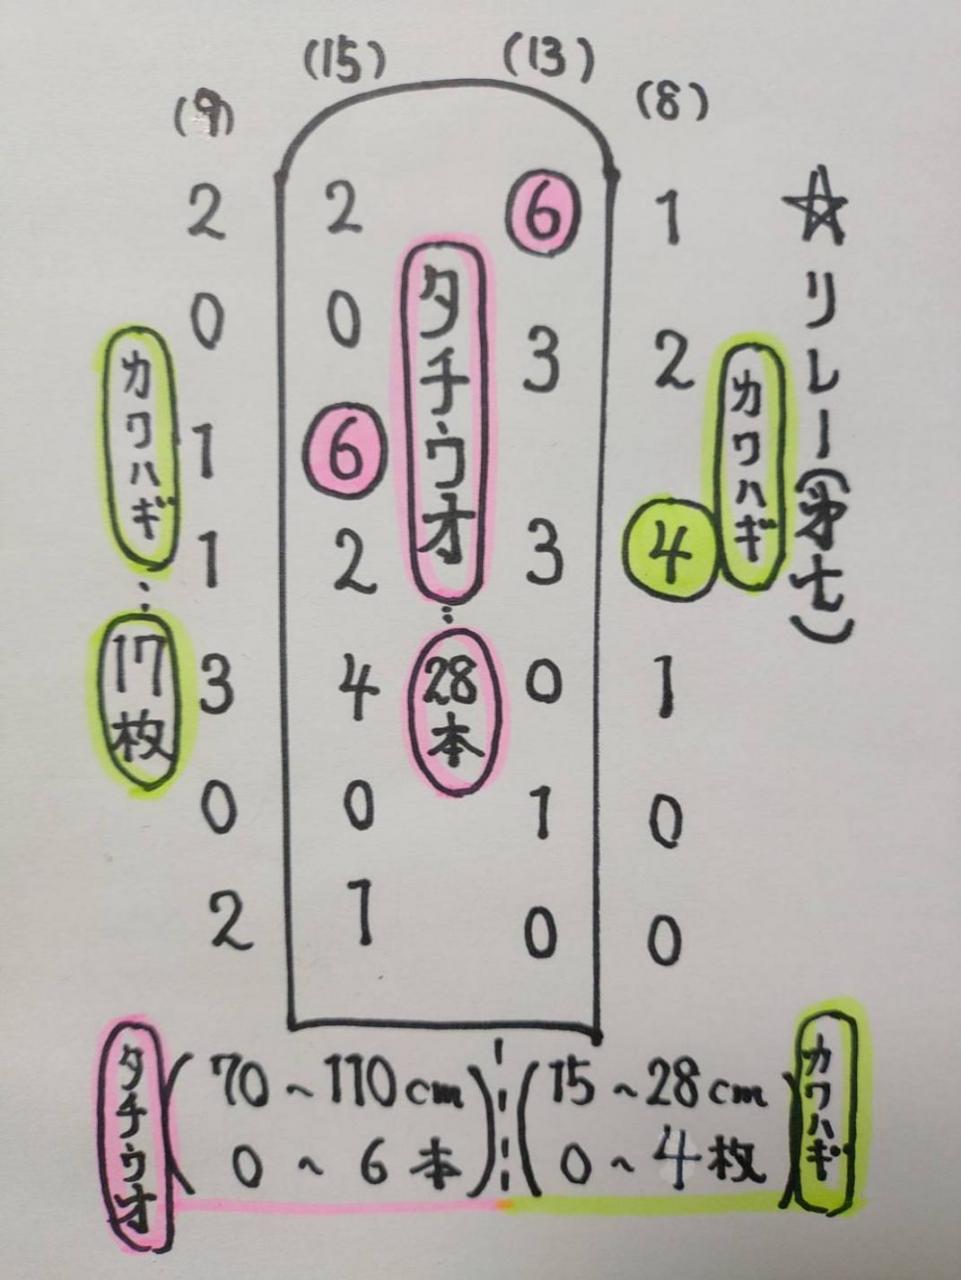 (9) (15) (13) (8)
2 2 6 1
0 0 3 2
1 6 3 4
1 2 0 1
3 4 1 0
0 0 0 0
2 1
カワハギ
17枚
タチウオ
28本
カワハギ
☆リレー(弟七)
タチウオ
(70~110cm
0~6本)
(15~28cm
0~4枚)
カワハギ